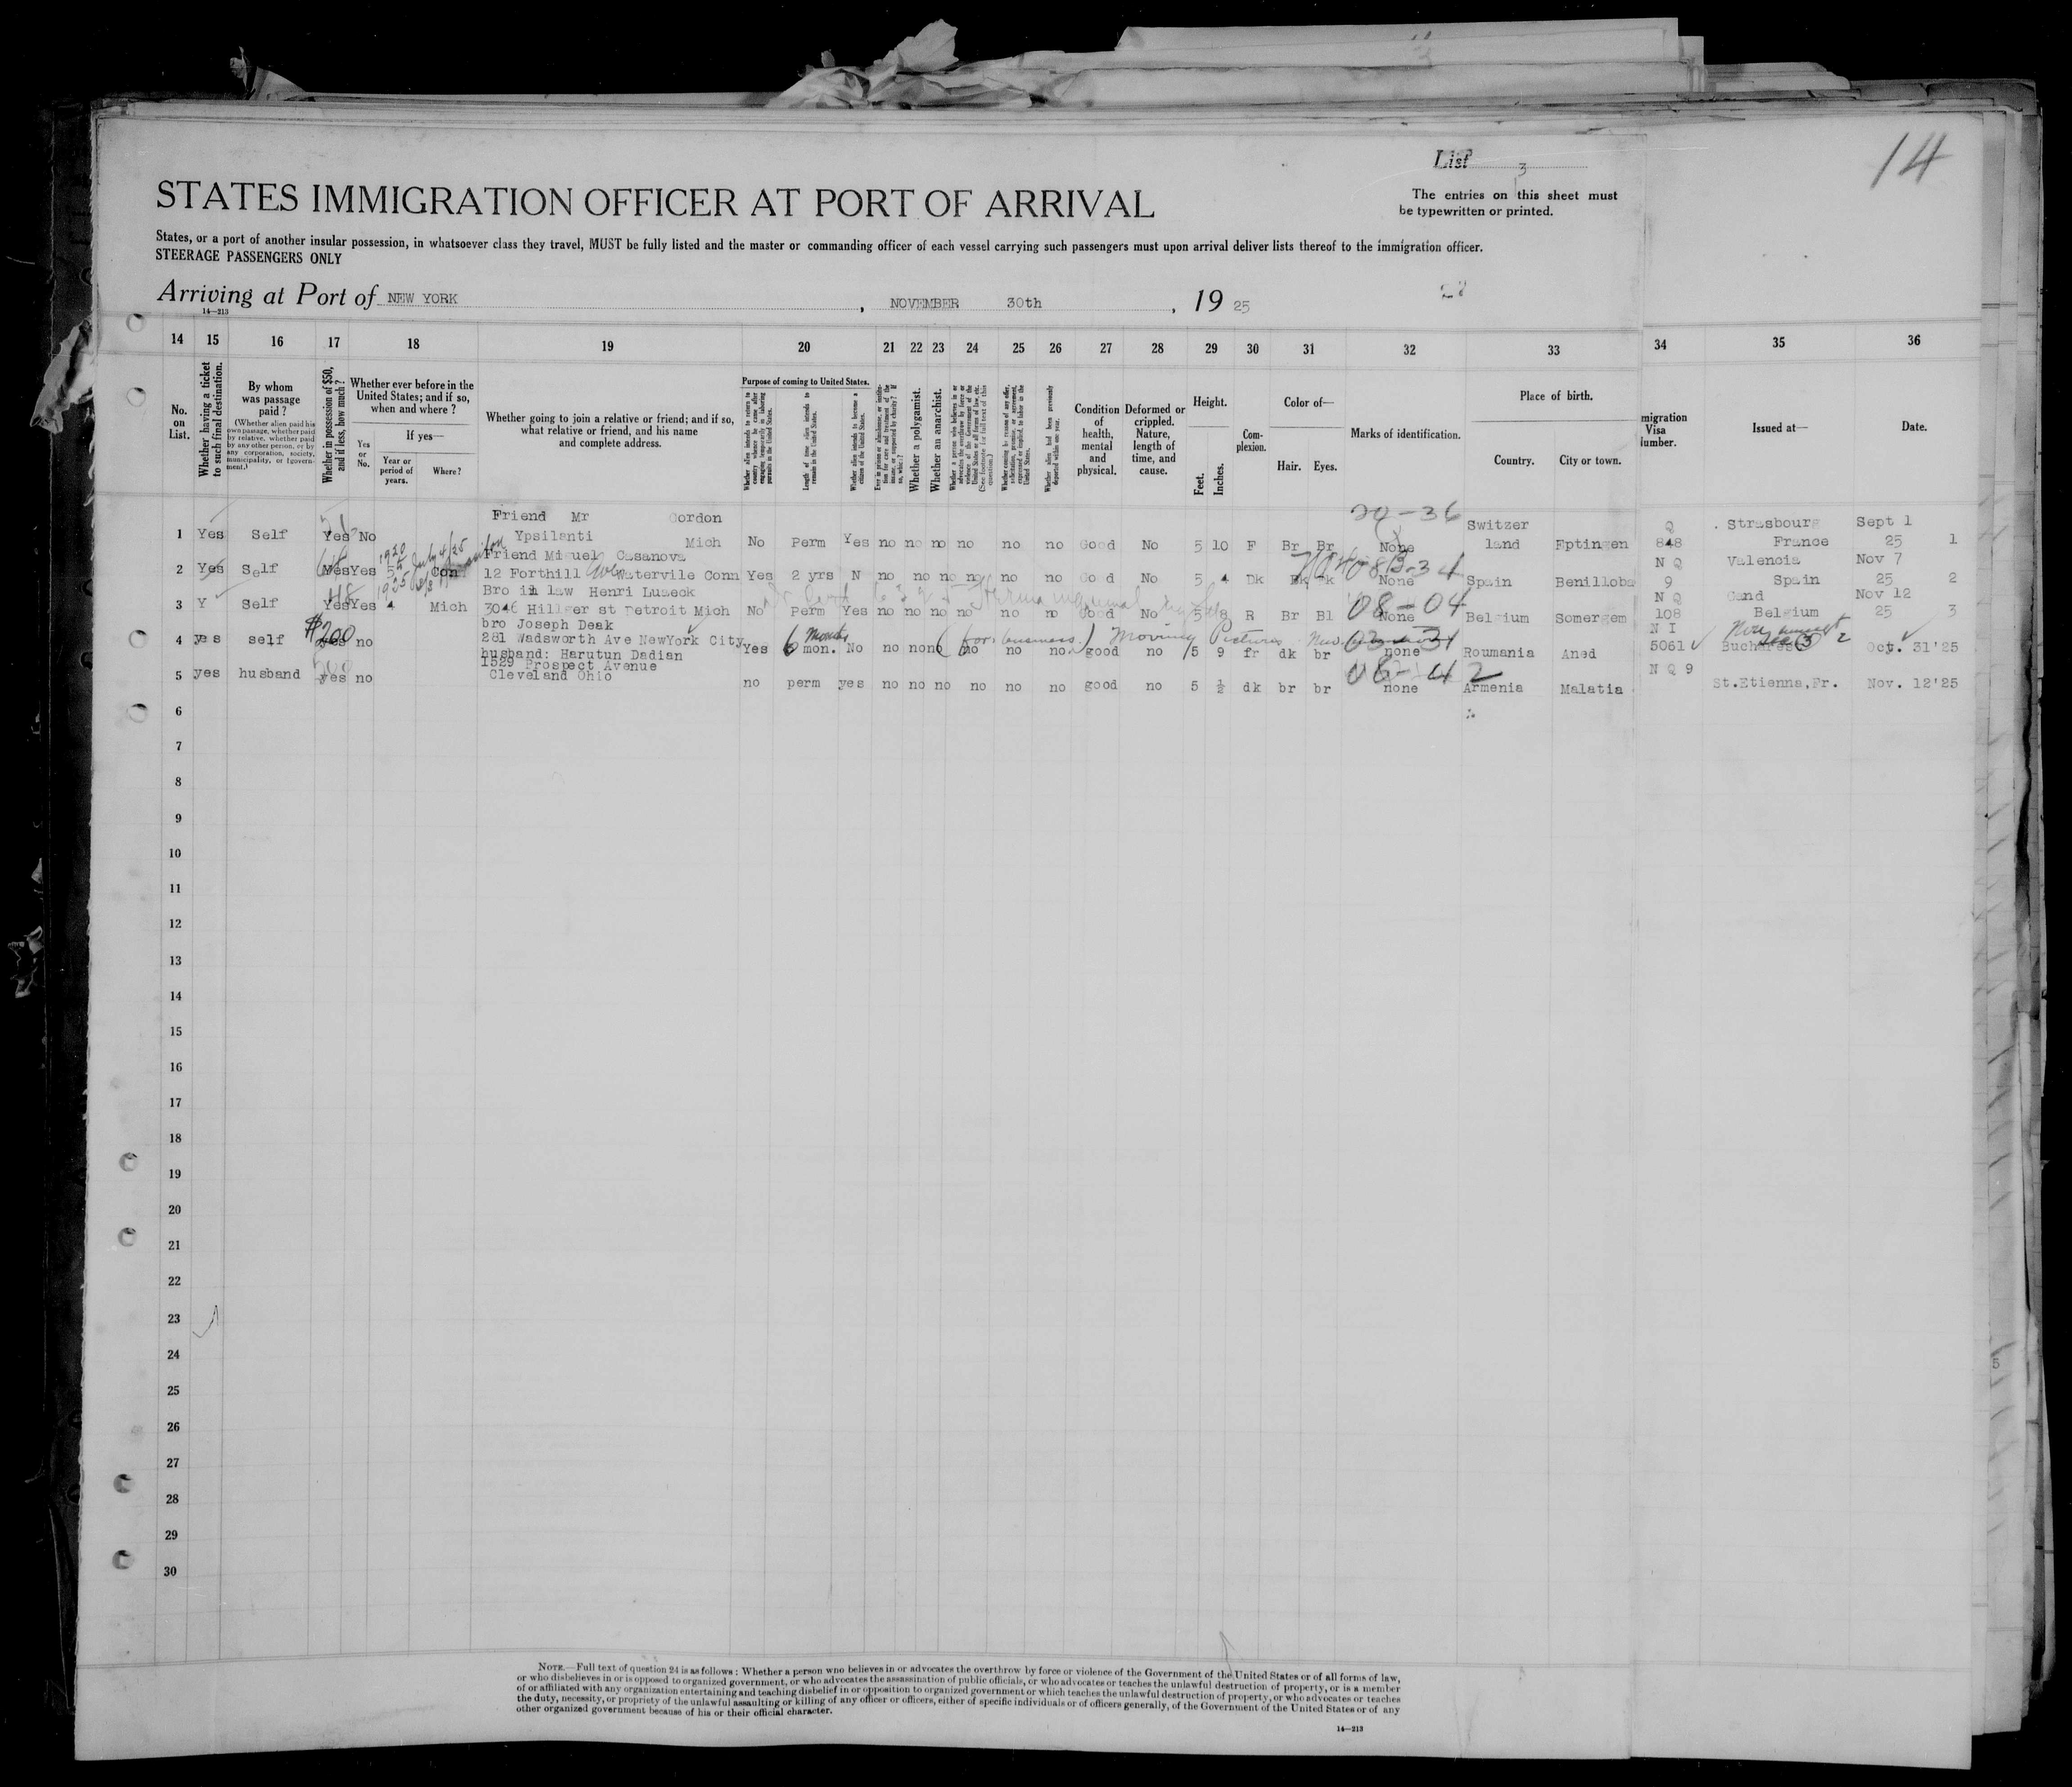 14
List 3
The entries on this sheet must
be typewritten or printed.
STATES IMMIGRATION OFFICER AT PORT OF ARRIVAL
States, or a port of another insular possession, in whatsoever class they travel, MUST be fully listed and the master or commanding officer of each vessel carrying such passengers must upon arrival deliver lists thereof to the immigration officer.
STEERAGE PASSENGERS ONLY
Arriving at Port of NEW YORK, NOVEMBER 30th, 19 25
14—213
14 15 16 17 18 19 20 21 22 23 24 25 26 27 28 29 30 31 32 33 34 35 36
No. on List.
Whether having a ticket to such final destination.
By whom was passage paid?
(Whether alien paid his own passage, whether paid by relative, whether paid by any other person, or by any corporation, society, municipality, or government.)
Whether in possession of $50, and if less, how much?
Whether ever before in the United States; and if so, when and where?
Yes or No.
If yes—
Year or period of years.
Where?
Whether going to join a relative or friend; and if so, what relative or friend, and his name and complete address.
Purpose of coming to United States.
Whether alien intends to return to country whence he came after engaging temporarily in laboring pursuits in the United States.
Length of time alien intends to remain in the United States.
Whether alien intends to become a citizen of the United States.
Ever in prison or almshouse, or institution for care and treatment of the insane, or supported by charity? If so, which?
Whether a polygamist.
Whether an anarchist.
Condition of health, mental and physical.
Deformed or crippled. Nature, length of time, and cause.
Height.
Feet.
Inches.
Complexion.
Color of—
Hair.
Eyes.
Marks of identification.
Place of birth.
Country.
City or town.
migration Visa Number.
Issued at—
Date.
Friend Mr Gordon 20-36 Switzer Q Strasbourg Sept 1
1 Yes Self Yes No Ypsilanti Mich No Perm Yes no no no no no no Good No 5 10 F Br Br None land Eptingen 848 France 25 1
Friend Miguel Casanova N Q Valencia Nov 7
2 Yes Self Yes Yes Conn 12 Forthill Ave Watervile Conn Yes 2 yrs N no no no no no no Good No 5 4 Dk Bk Bk None Spain Benilloba 9 Spain 25 2
Bro in law Henri Luzeck 08-04 N Q Gand Nov 12
3 Y Self Yes Yes 4 Mich 3046 Hillger st Detroit Mich No Perm Yes no no no no no no Good No 5 8 R Br Bl None Belgium Somergem 108 Belgium 25 3
bro Joseph Deak N I
4 yes self $200 yes no 281 Wadsworth Ave NewYork City Yes 6 mon. No no no no no no no good no 5 9 fr dk br none Roumania Aned 5061 Bucharest Oct. 31'25
(for business) Moving Pictures
husband: Harutun Dadian
1529 Prospect Avenue 06-42 N Q 9
5 yes husband yes no Cleveland Ohio no perm yes no no no no no no good no 5 ½ dk br br none Armenia Malatia St.Etienna,Fr. Nov. 12'25
6
7
8
9
10
11
12
13
14
15
16
17
18
19
20
21
22
23
24
25
26
27
28
29
30
NOTE.—Full text of question 24 is as follows: Whether a person who believes in or advocates the overthrow by force or violence of the Government of the United States or of all forms of law,
or who disbelieves in or is opposed to organized government, or who advocates the assassination of public officials, or who advocates or teaches the unlawful destruction of property, or is a member
of or affiliated with any organization entertaining and teaching disbelief in or opposition to organized government or which teaches the unlawful destruction of property, or who advocates or teaches
the duty, necessity, or propriety of the unlawful assaulting or killing of any officer or officers, either of specific individuals or of officers generally, of the Government of the United States or of any
other organized government because of his or their official character.
14—213